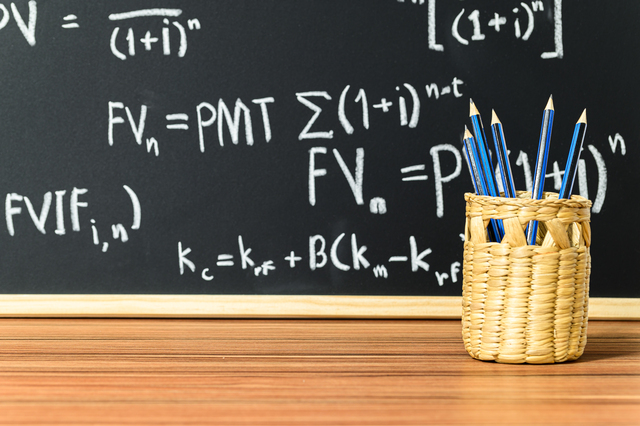 PV = FV / (1+i)^n
[(1+i)^n]
FV_n = PMT Σ(1+i)^n-t
FV_n = P (1+i)^n
FVIF_i,n)
k_c = k_rf + B(k_m - k_rf